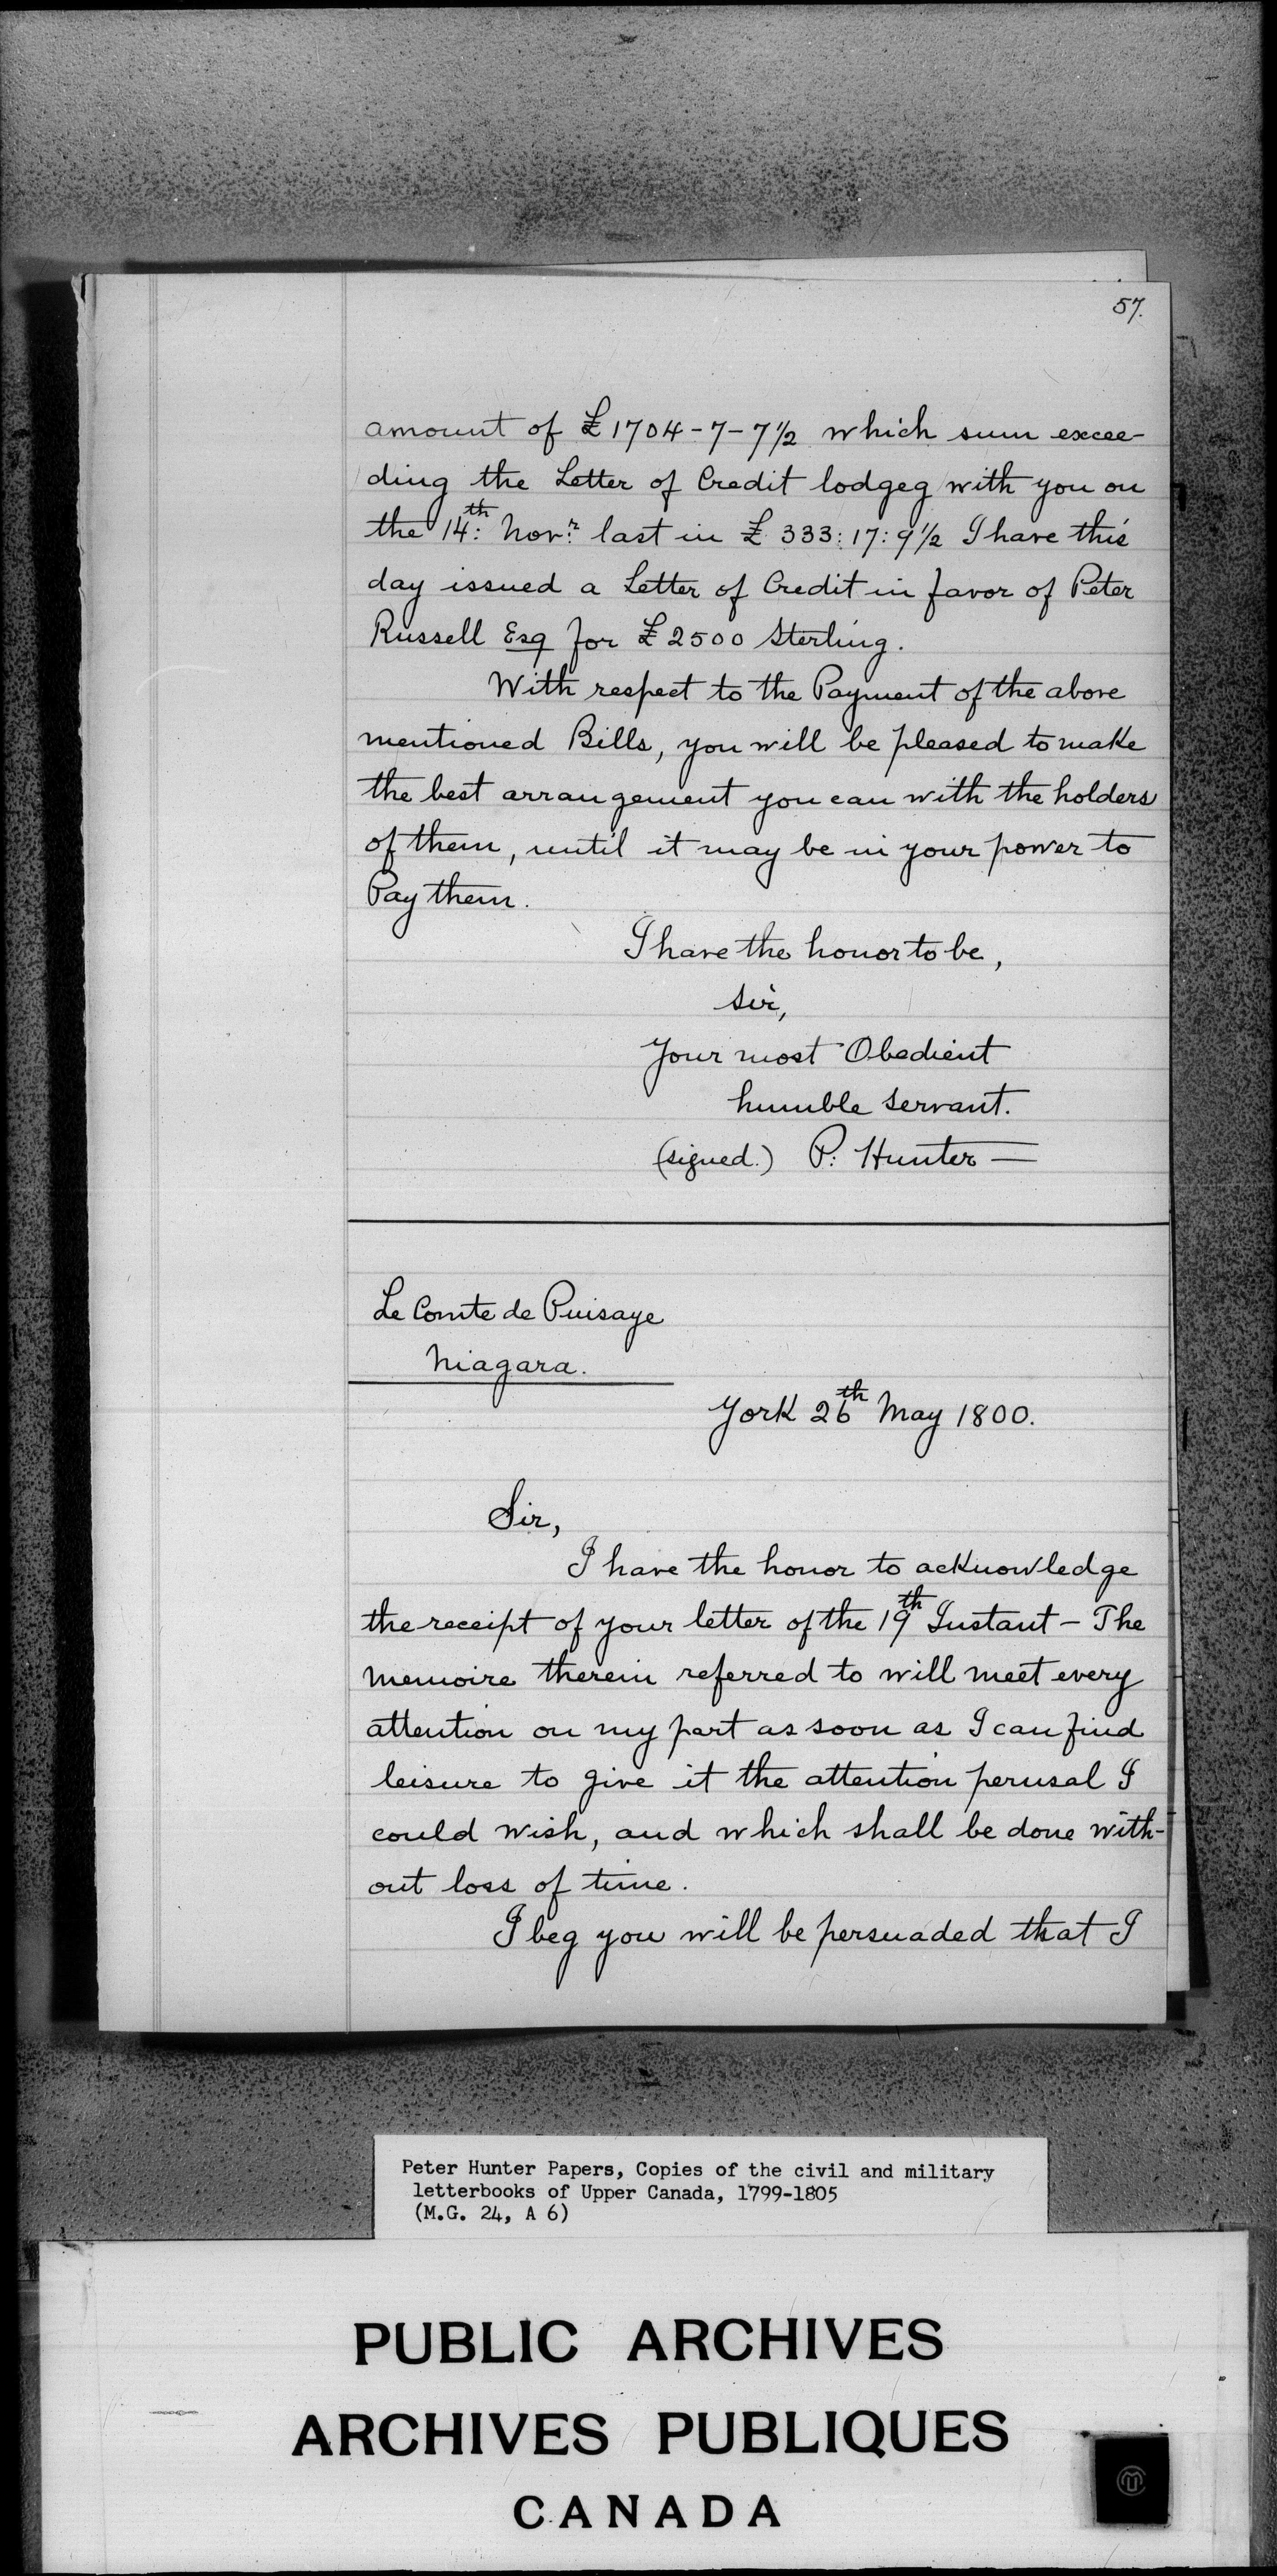 57.
amount of £1704-7-7½ which sum excee-
ding the Letter of Credit lodgeg with you on
the 14th: Novr. last in £ 333:17:9½ I have this
day issued a Letter of Credit in favor of Peter
Russell Esq for £2500 Sterling.
With respect to the Payment of the above
mentioned Bills, you will be pleased to make
the best arrangement you can with the holders
of them, until it may be in your power to
Pay them.
I have the honor to be,
Sir,
Your most Obedient
humble Servant.
(signed.) P: Hunter —
Le Comte de Puisaye
Niagara.
York 26th May 1800.
Sir,
I have the honor to acknowledge
the receipt of your letter of the 19th Instant - The
Memoire therein referred to will meet every
attention on my part as soon as I can find
leisure to give it the attention perusal I
could wish, and which shall be done with-
out loss of time.
I beg you will be persuaded that I
Peter Hunter Papers, Copies of the civil and military
letterbooks of Upper Canada, 1799-1805
(M.G. 24, A 6)
PUBLIC ARCHIVES
ARCHIVES PUBLIQUES
CANADA